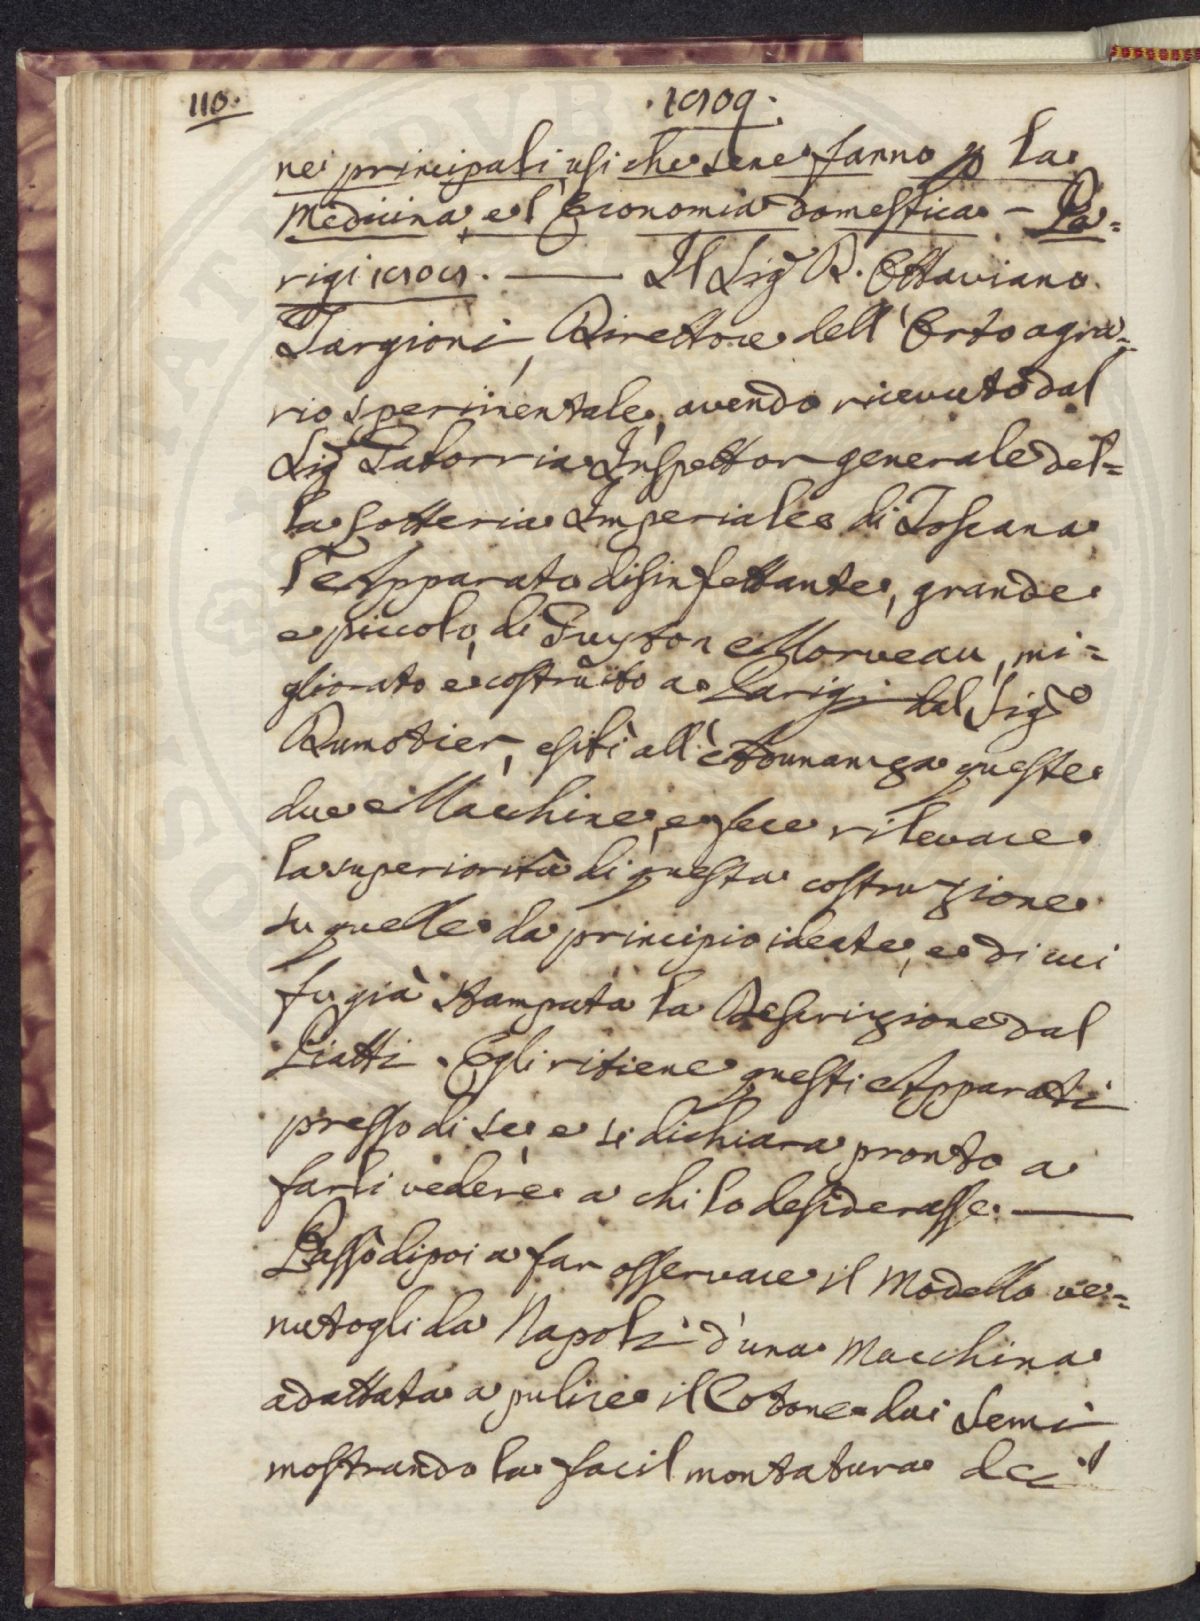 110.
1809.
nei principali usi che se ne fanno p la
Medicina, e l'Economia domestica - Pa=
rigi 1808. — Il Sig.r D. Ottaviano
Targioni, Direttore dell'Orto agra=
rio sperimentale, avendo ricevuto dal
Sig.r Inspettor generale del=
la Lotteria Imperiale di Toscana
l'Apparato disinfettante, grande
e piccolo, di Guyton Morveau, mi=
gliorato e costruito a Parigi dal Sig.r
Dumotier, esibì all'Adunanza queste
due Macchine, e fece rilevare
la superiorità di questa costruzione
su quelle da principio ideate, e di cui
fu già stampata la Descrizione dal
Piatti. Egli ritiene questi Apparati
presso di se, e si dichiara pronto a
farli vedere a chi lo desiderasse. —
Passò dipoi a far osservare il Modello ve=
nutogli da Napoli d'una Macchina
adattata a pulire il Cotone dai Semi
mostrando la facil montatura dei